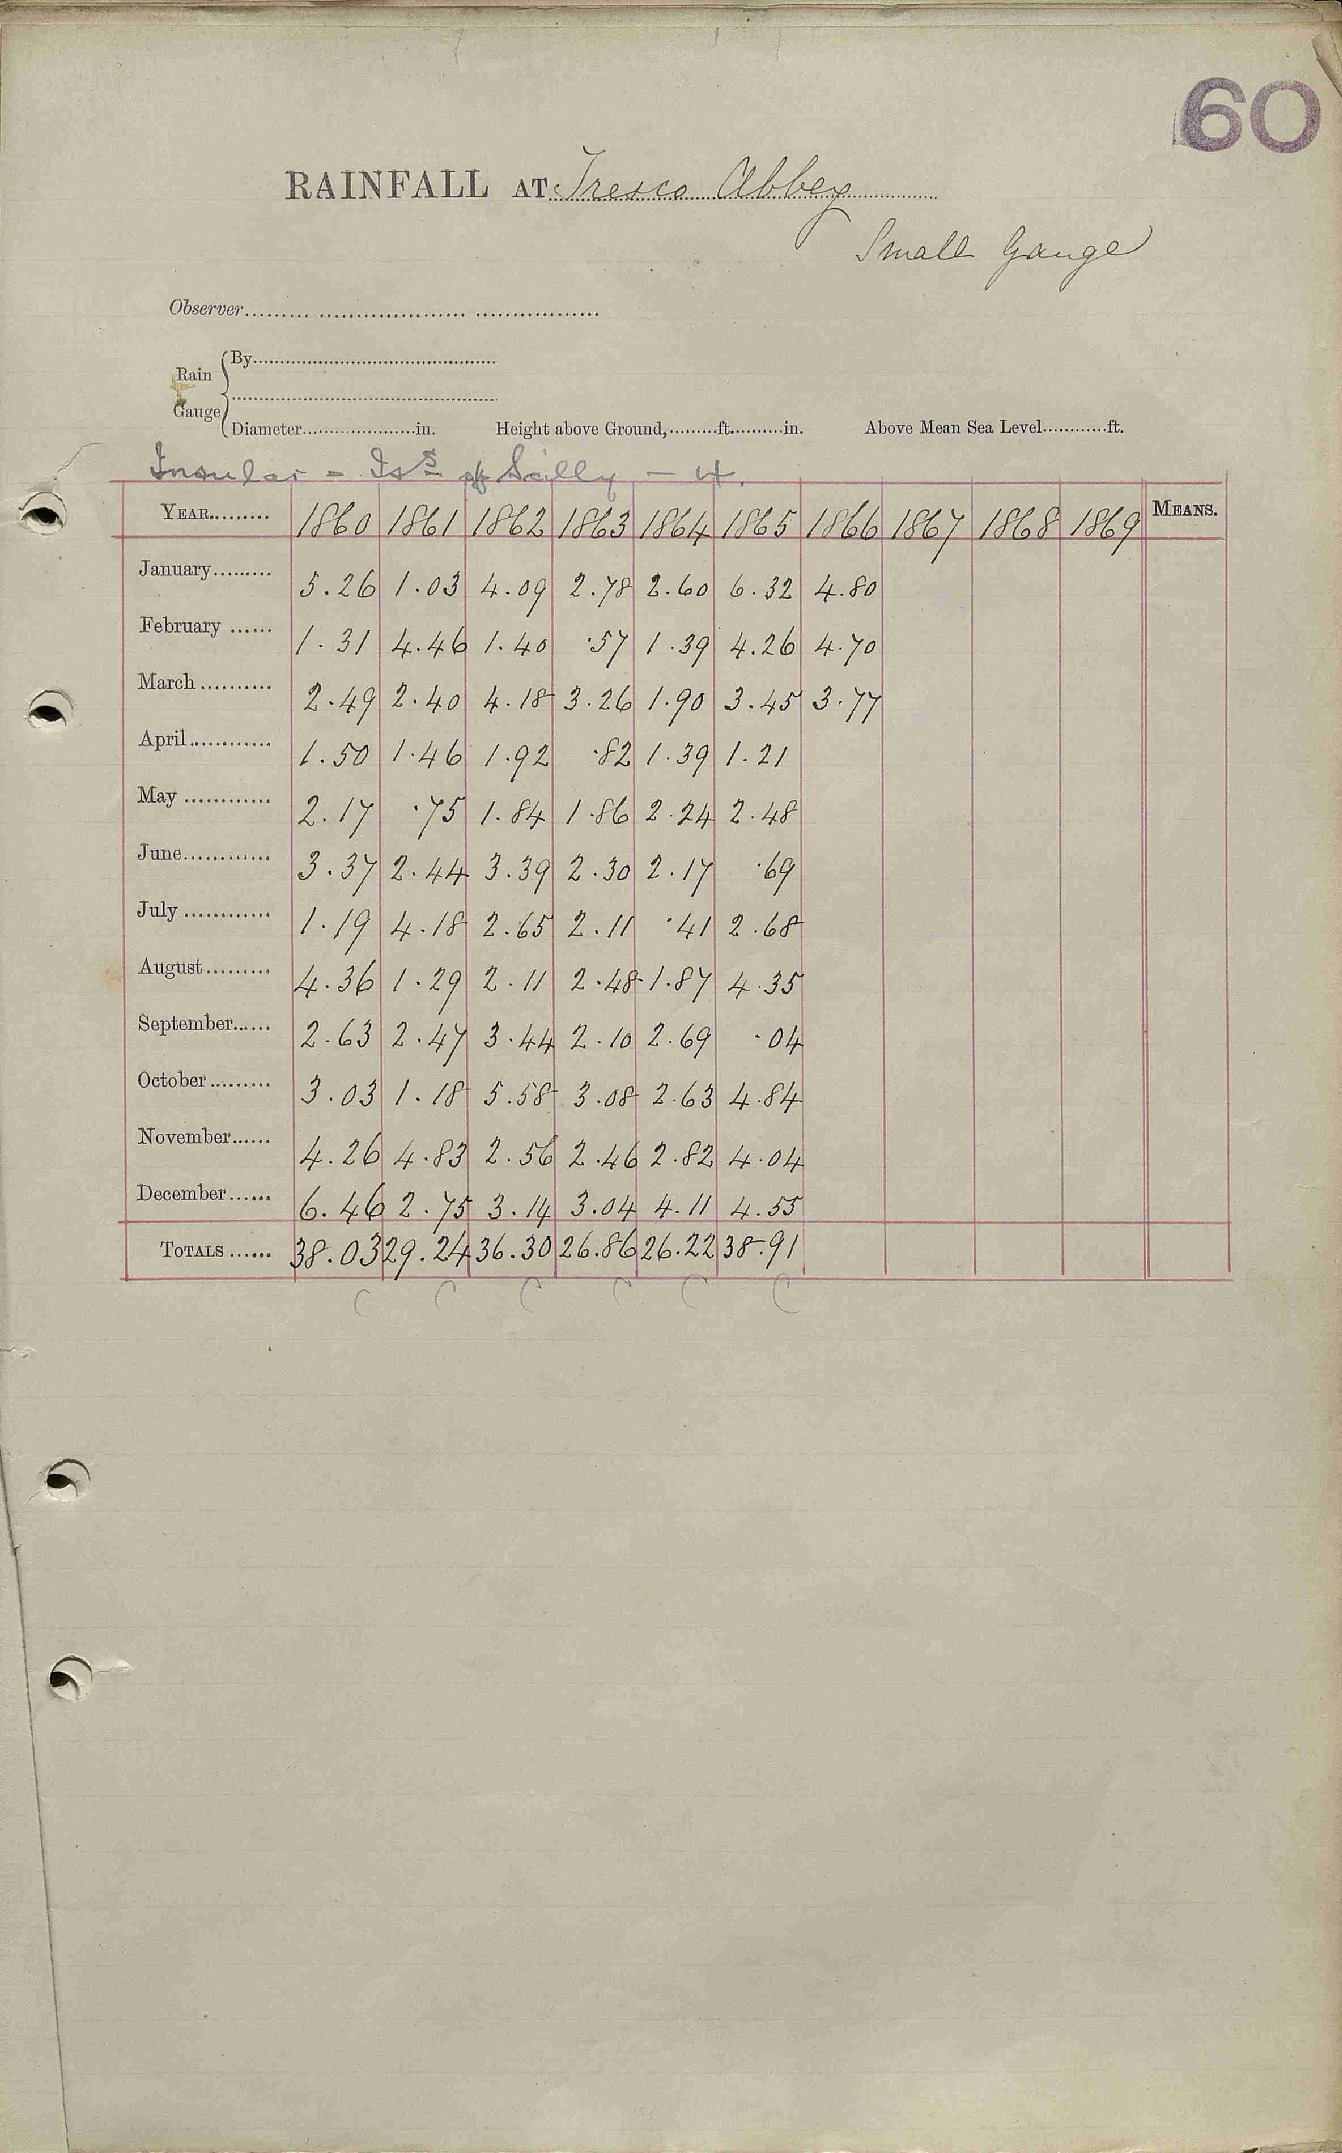 60
RAINFALL AT Tresco Abbey
Small Gauge
Observer
By
Rain
Gauge
Diameter in. Height above Ground, ft. in. Above Mean Sea Level ft.
Insular - Is^s of Scilly - 4.
YEAR 1860 1861 1862 1863 1864 1865 1866 1867 1868 1869 MEANS.
January 5.26 1.03 4.09 2.78 2.60 6.32 4.80
February 1.31 4.46 1.40 .57 1.39 4.26 4.70
March 2.49 2.40 4.18 3.26 1.90 3.45 3.77
April 1.50 1.46 1.92 .82 1.39 1.21
May 2.17 .75 1.84 1.86 2.24 2.48
June 3.37 2.44 3.39 2.30 2.17 .69
July 1.19 4.18 2.65 2.11 .41 2.68
August 4.36 1.29 2.11 2.48 1.87 4.35
September 2.63 2.47 3.44 2.10 2.69 .04
October 3.03 1.18 5.58 3.08 2.63 4.84
November 4.26 4.83 2.56 2.46 2.82 4.04
December 6.46 2.75 3.14 3.04 4.11 4.55
TOTALS 38.03 29.24 36.30 26.86 26.22 38.91